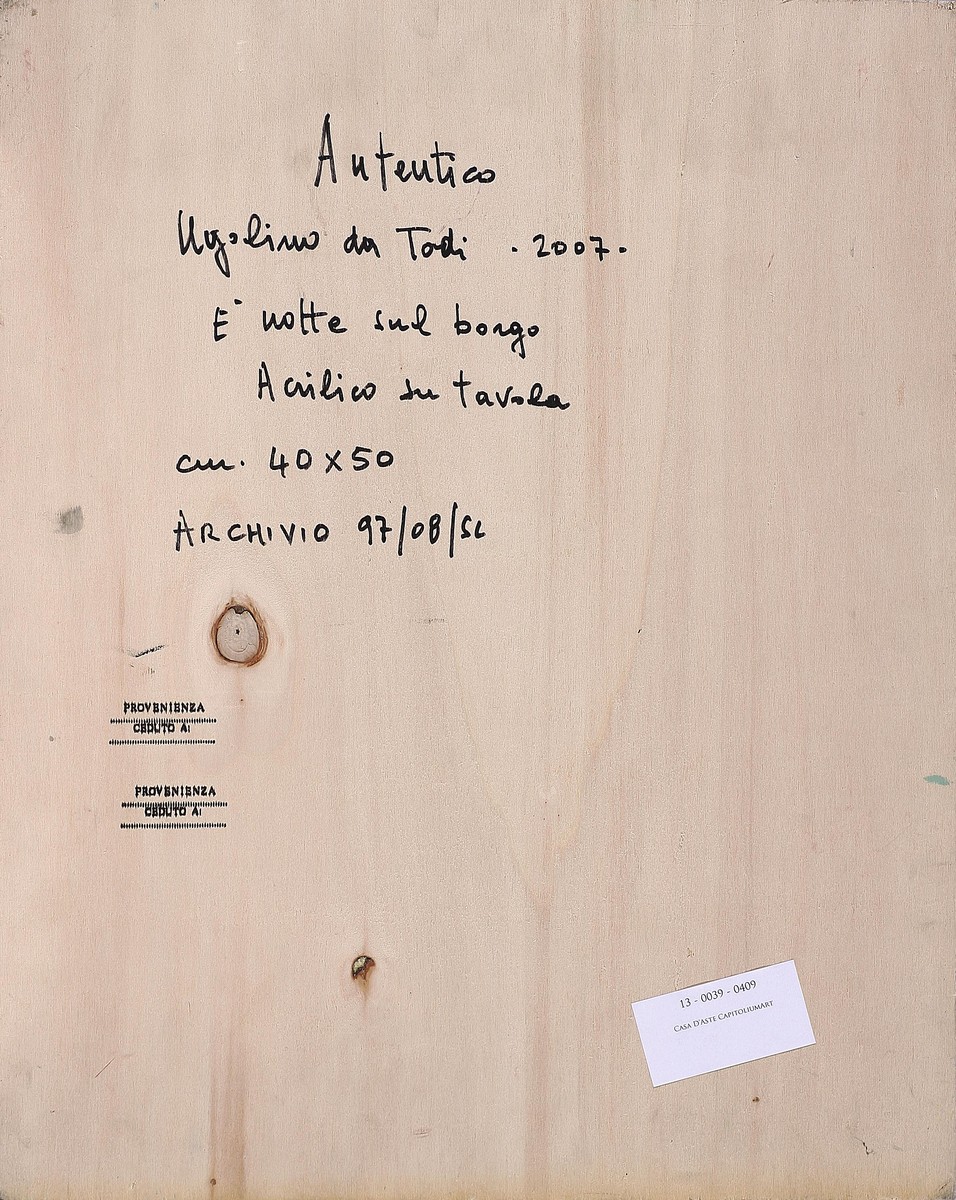 Autentico
Ugolino da Todi . 2007.
E' notte sul borgo
Acrilico su tavola
cm. 40x50
ARCHIVIO 97/08/SL
PROVENIENZA
CEDUTO A:
PROVENIENZA
CEDUTO A:
13 - 0039 - 0409
CASA D'ASTE CAPITOLIUMART